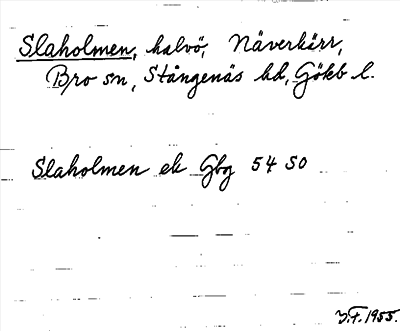 Slaholmen, halvö, Näverkärr,
Bro sn, Stångenäs hd, Gökb l.
Slaholmen ek Gbg 54 SO
1955.